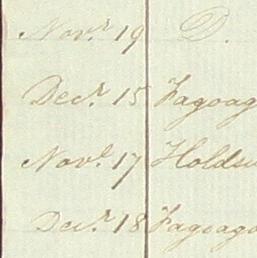 Novr. 19 D.
Decr. 15 Fagoag
Novr. 17 Holdsw
Decr. 18 Fagoago